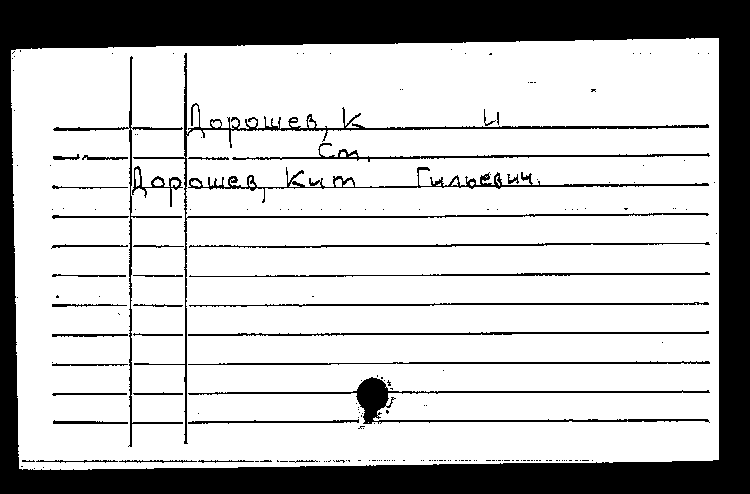 Дорошев, К И
См.
Дорошев, Кит Гильевич.